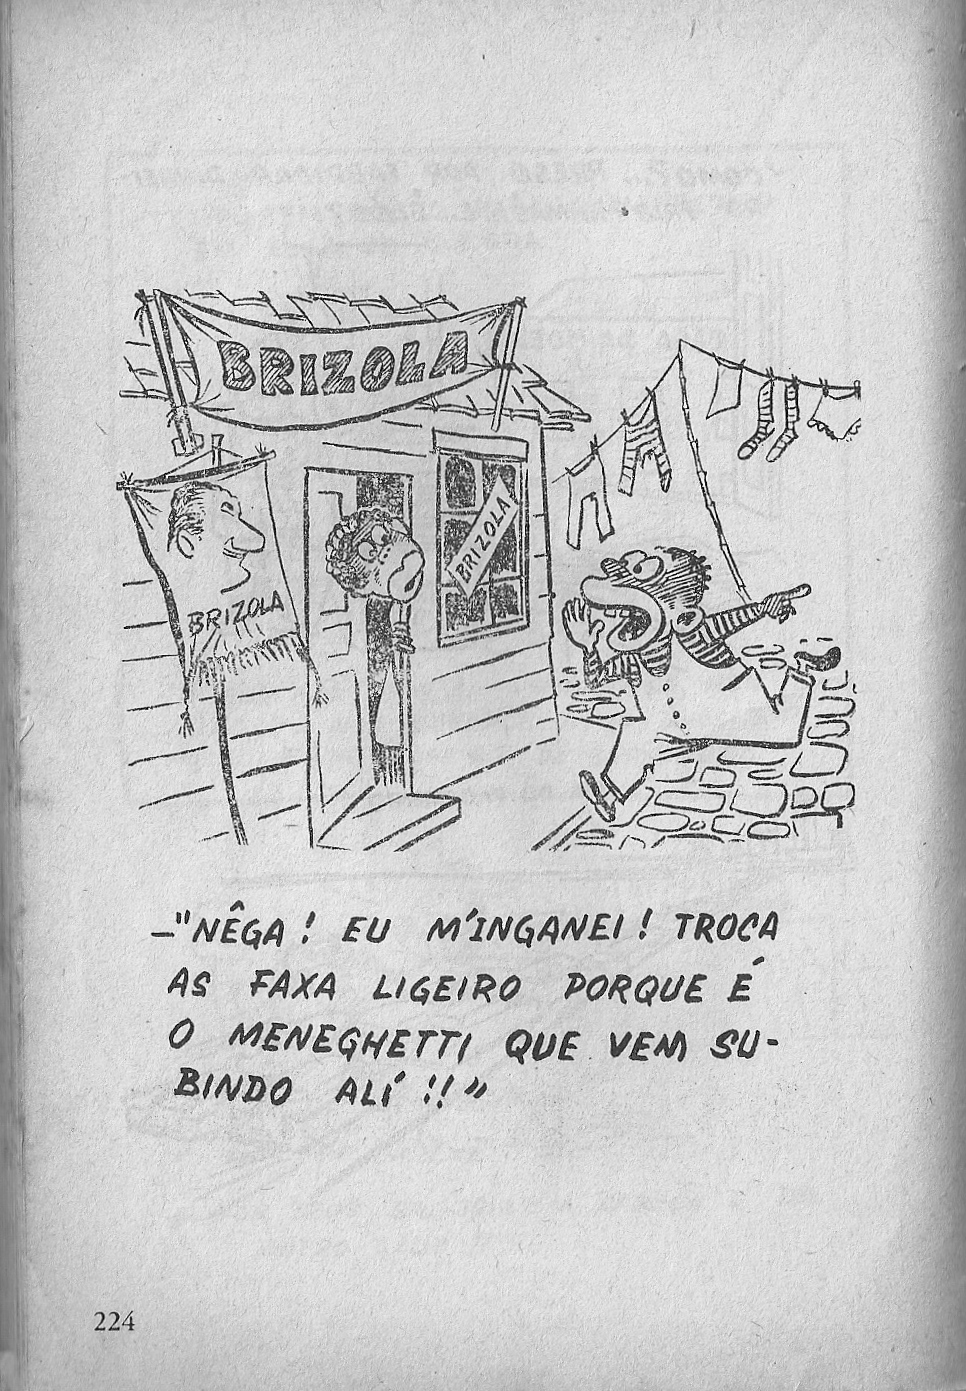 BRIZOLA
BRIZOLA
BRIZOLA
—"NÊGA! EU M'INGANEI! TROCA
AS FAXA LIGEIRO PORQUE É
O MENEGHETTI QUE VEM SU-
BINDO ALÍ!!"
224